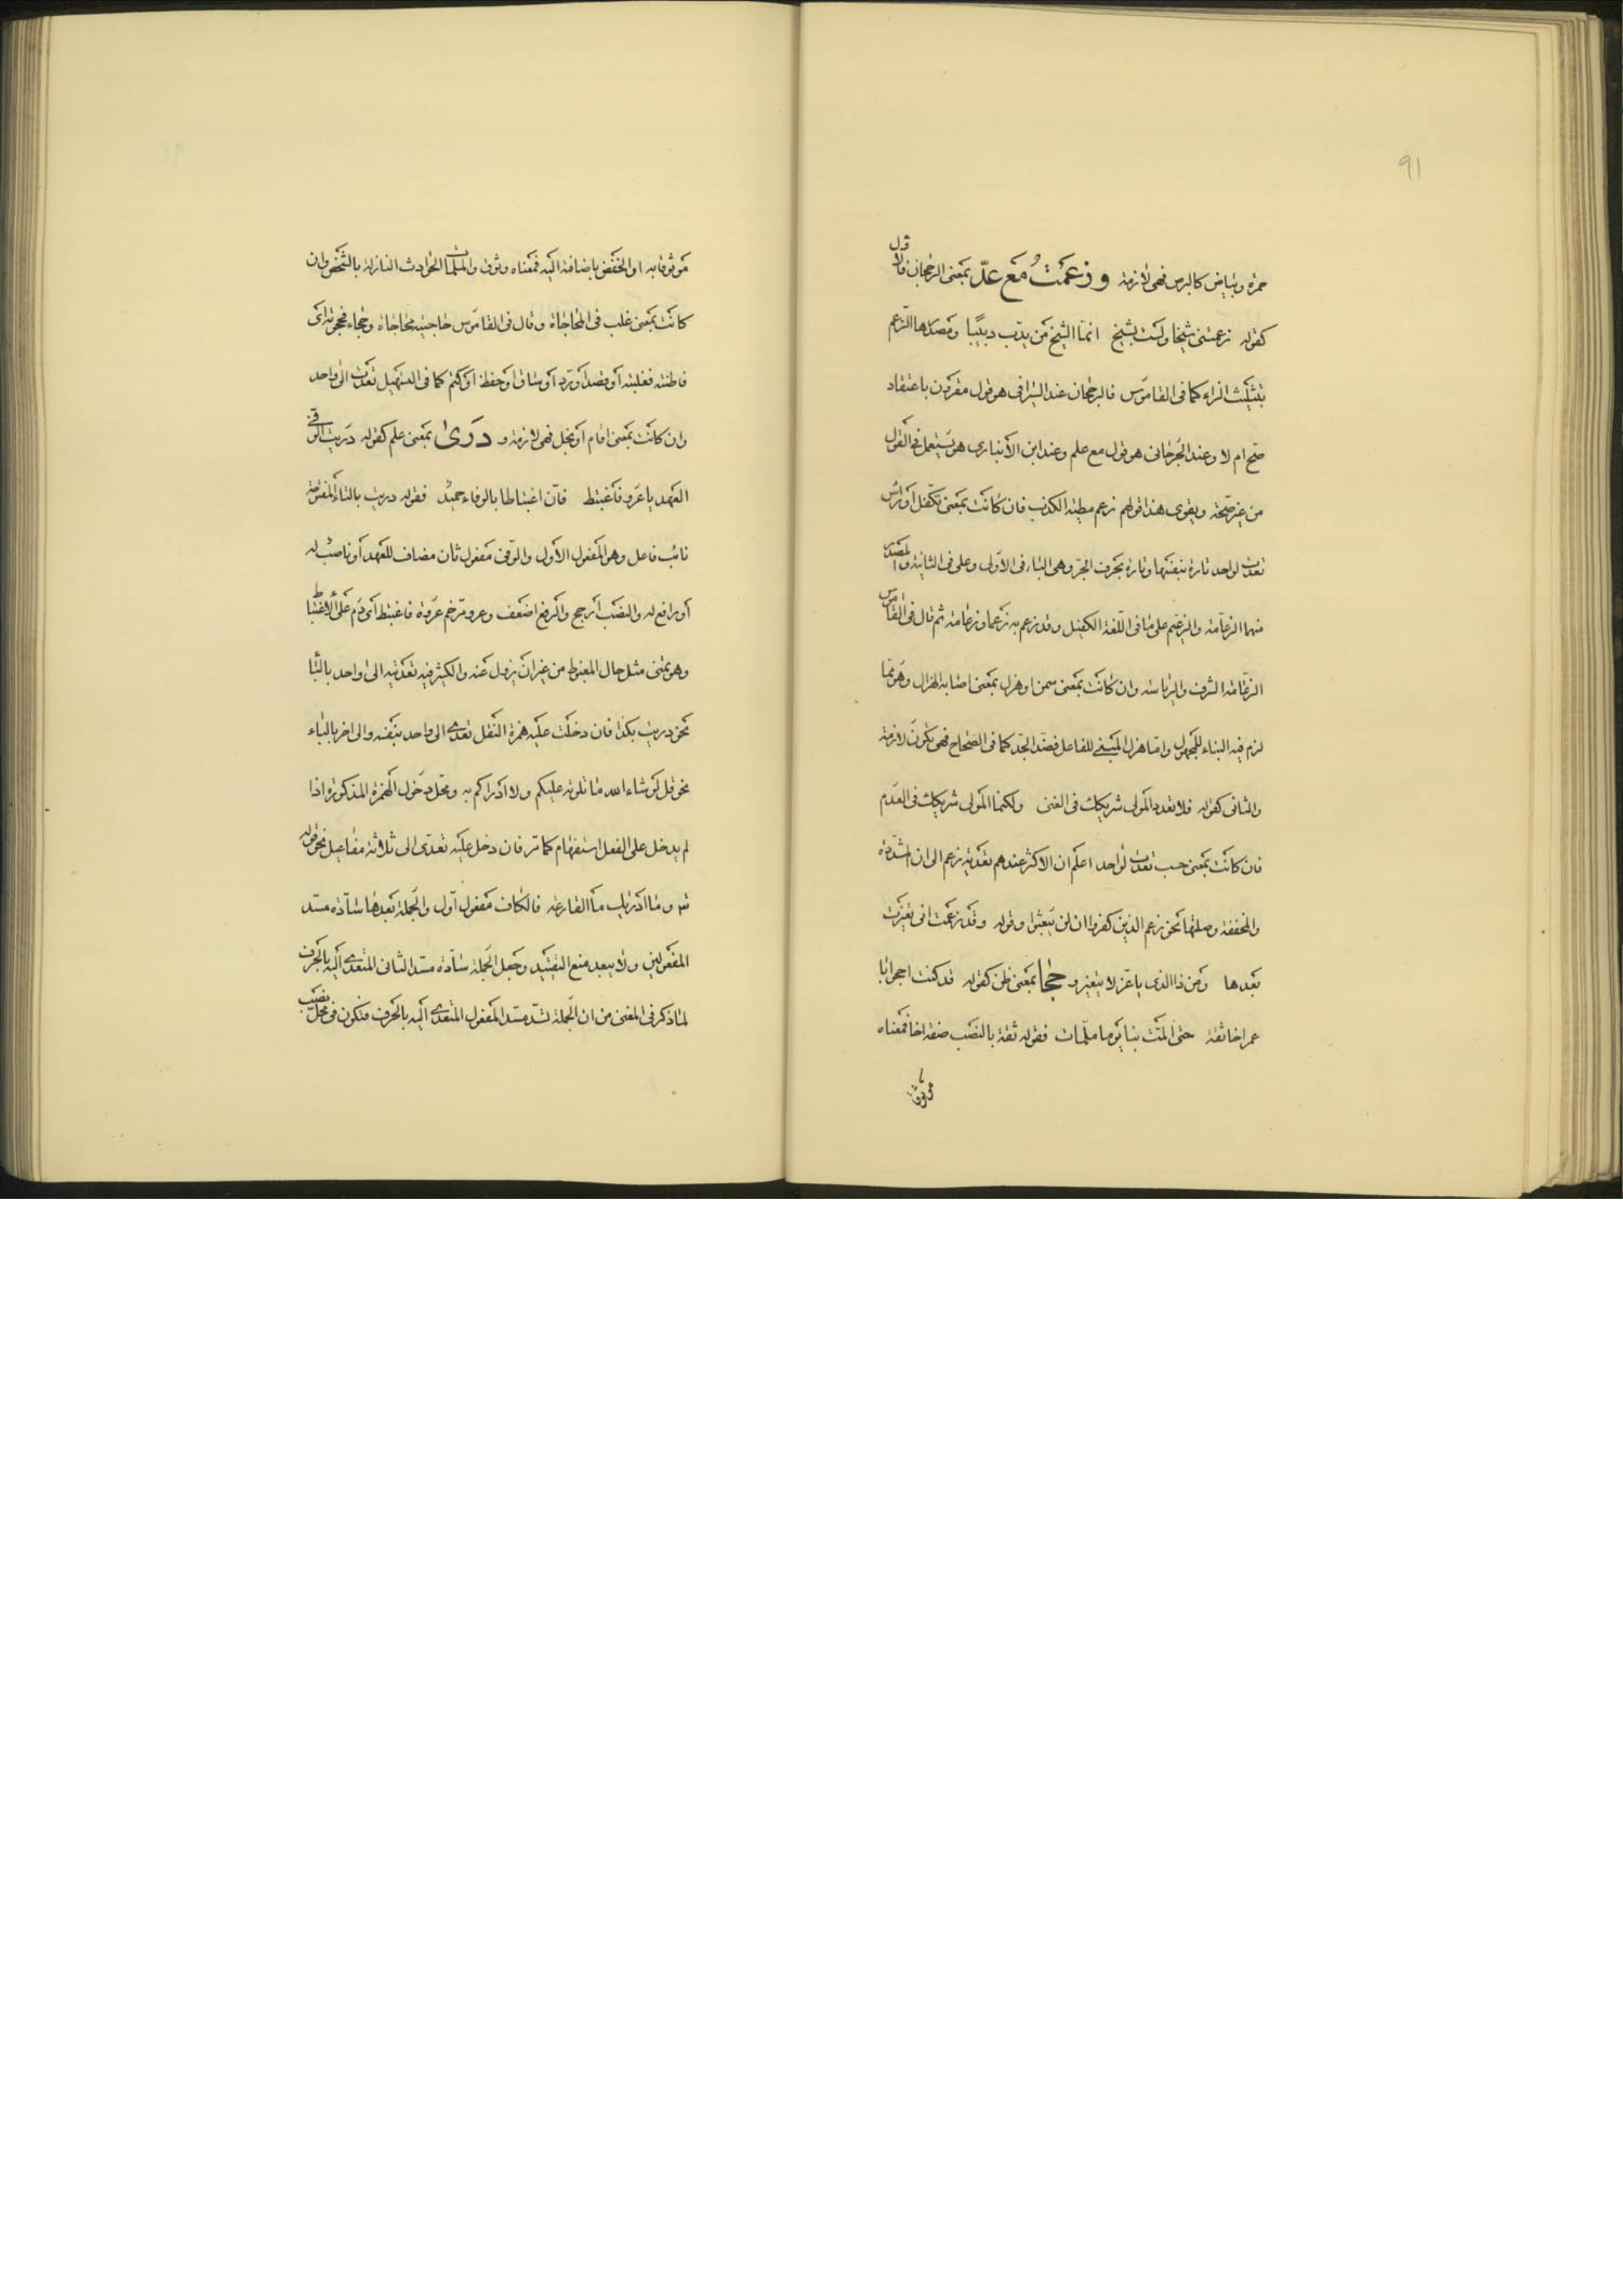 91
حمرة وبياض كالبرص فهى لازمة وزعمتُ مَع عدّ بمعنى الرجحان فالاول
كقوله زعمتنى شيخا ولست بشيخ انما الشيخ من يدب دبيبًا ومصدرها الزعم
بتثليث الزاء كما فى القاموس فالرجحان عند السيرافى هو قول مقرون باعتقاد
صح ام لا وعند الجرجانى هو قول مع علم وعند ابن الأنبارى هو يستعمل فى القول
من غير صحة ويقوى هذا قولهم زعم مطية الكذب فان كانت بمعنى تكفل او رأس
تعدت لواحد تارة بنفسها وتارة بحرف الجر وهى الباء فى الاولى وعلى فى الثانية والمصدر
منهما الزعامة والزعيم على ما فى اللغة الكفيل وقد زعم به زعما وزعامة ثم قال فى القاموس
الزعامة الشرف والرياسة وان كانت بمعنى سمن او هزل بمعنى اصابه الهزال وهو مما
لزم فيه البناء للمجهول واما هزل المبنى للفاعل فضد الجد كما فى الصحاح فهى تكون لازمة
والثانى كقوله فلا تعدد المولى شريكك فى الغنى ولكنما المولى شريكك فى العدم
فان كانت بمعنى حسب تعدت لواحد اعلم ان الاكثر عندهم تعدية زعم الى ان المشددة
والمخففة وصلتها نحو زعم الذين كفروا ان لن يبعثوا وقوله وقد زعمت انى تغيرت
بعدها ومن ذا الذى يا عز لا يتغير و حجا بمعنى ظن كقوله قد كنت احجو ابا
عمر اخا ثقة حتى المت بنا يوما ملمات فقوله ثقة بالنصب صفة اخا فمعناه
موثوقا
موثوقا به او الخفض باضافة اليه فمعناه وثوق والملمات الحوادث النازلة بالشخص وان
كانت بمعنى غلب فى المحاجاة وقال فى القاموس حاجيته محاجاة وحجاء فحجوته اى
فاطنته فغلبته أو قصد أو رد أو ساق او حفظ او كتم كما فى التسهيل تعدت الى واحد
وان كانت بمعنى اقام أو بخل فهى لازمة و درى بمعنى علم كقوله دريت الوفى
العهد يا عرو فاغتبط فان اغتباطا بالوفاء حميدُ فقوله دريت بالتاء المفتوحة
نائب فاعل وهو المفعول الأول والوفى مفعول ثان مضاف للعهد أو ناصب له
أو رافع له والنصب أرجح والرفع اضعف وعرو ترخم عروة فاغتبط أى دم على الاغتباط
وهو تمنى مثل حال المغبوط من غير ان يزول عنه والكثير فيه تعديته الى واحد بالباء
نحو دريت بكذا فان دخلت عليه همزة النقل تعدى الى واحد بنفسه والى اخر بالباء
نحو قل لو شاء الله ما تلوته عليكم ولا ادراكم به ومحل دخول الهمزة المذكورة اذا
لم يدخل على الفعل استفهام كما مر فان دخل عليه تعدى الى ثلاثة مفاعيل نحو قوله
تع وما ادريك ما القارعة فالكاف مفعول أول والجملة بعدها سادة مسد
المفعولين ولا يبعد منع التقييد وجعل الجملة سادة مسد الثانى المتعدى اليه بالحرف
لما ذكر فى المغنى من ان الجملة تسد مسد المفعول المتعدى اليه بالحرف فتكون فى محل نصب